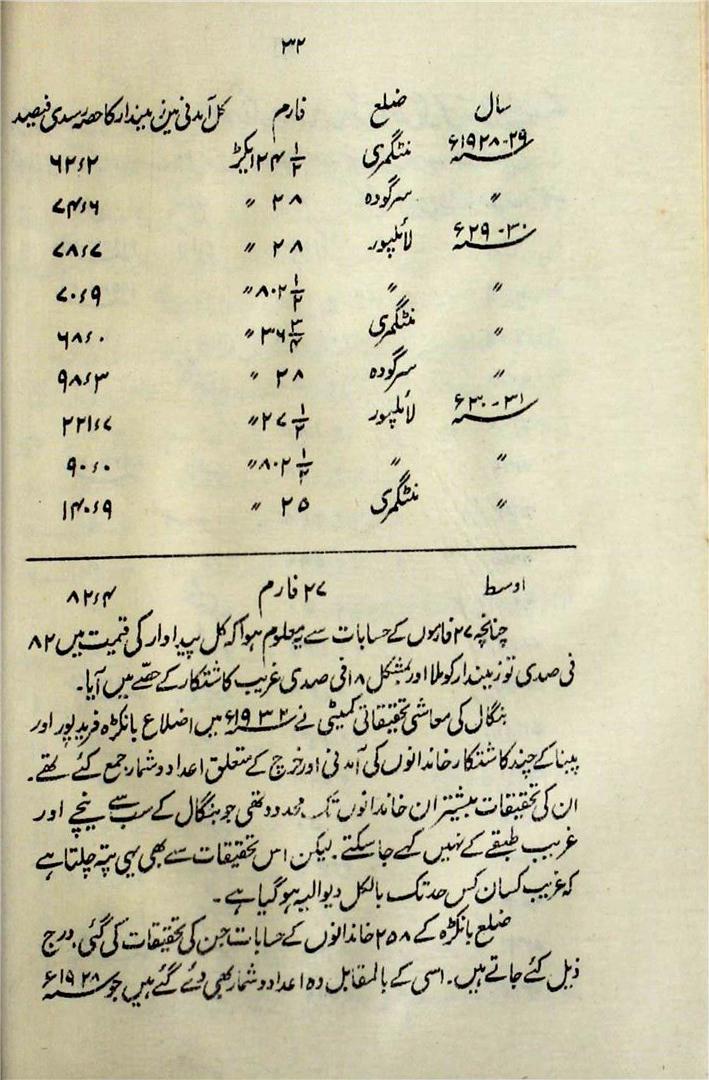 ۳۲
سال ضلع فارم کل آمدنی میں زمیندار کا حصہ رسدی فیصد
۲۹-۱۹۲۸ء منٹگمری ۲۴ ۱/۲ ایکڑ ۶۲ء۲
〃 سرگودہ ۲۸ 〃 ۷۴ء۶
۳۰-۲۹ء لائلپور ۲۸ 〃 ۷۸ء۷
〃 〃 ۸۰۲ ۱/۲ 〃 ۷۰ء۹
〃 منٹگمری ۳۶ ۳/۴ 〃 ۶۸ء۰
〃 سرگودہ ۲۸ 〃 ۹۸ء۳
۳۱-۳۰ء لائلپور ۲۷ ۱/۲ 〃 ۲۲۱ء۷
〃 〃 ۸۰۲ ۱/۲ 〃 ۹۰ء۰
〃 منٹگمری ۲۵ 〃 ۱۴۰ء۹
اوسط ۲۷ فارم ۸۲ء۴
چنانچہ ۲۷ فارموں کے حسابات سے یہ معلوم ہوا کہ کل پیداوار کی قیمت میں ۸۲
فی صدی تو زمیندار کو ملا اور بمشکل ۱۸ فی صدی غریب کاشتکار کے حصے میں آیا۔
بنگال کی معاشی تحقیقاتی کمیٹی نے ۱۹۳۲ء میں اضلاع بانکڑہ فرید پور اور
پبنا کے چند کاشتکار خاندانوں کی آمدنی اور خرچ کے متعلق اعداد و شمار جمع کئے تھے۔
ان کی تحقیقات بیشتر ان خاندانوں تک محدود تھی جو بنگال کے سب سے نیچے اور
غریب طبقے کے نہیں کہے جا سکتے۔ لیکن اس تحقیقات سے بھی یہی پتہ چلتا ہے
کہ غریب کسان کس حد تک بالکل دیوالیہ ہو گیا ہے۔
ضلع بانکڑہ کے ۲۵۸ خاندانوں کے حسابات جن کی تحقیقات کی گئی، درج
ذیل کئے جاتے ہیں۔ اسی کے بالمقابل وہ اعداد و شمار بھی دئے گئے ہیں جو ۱۹۲۸ء